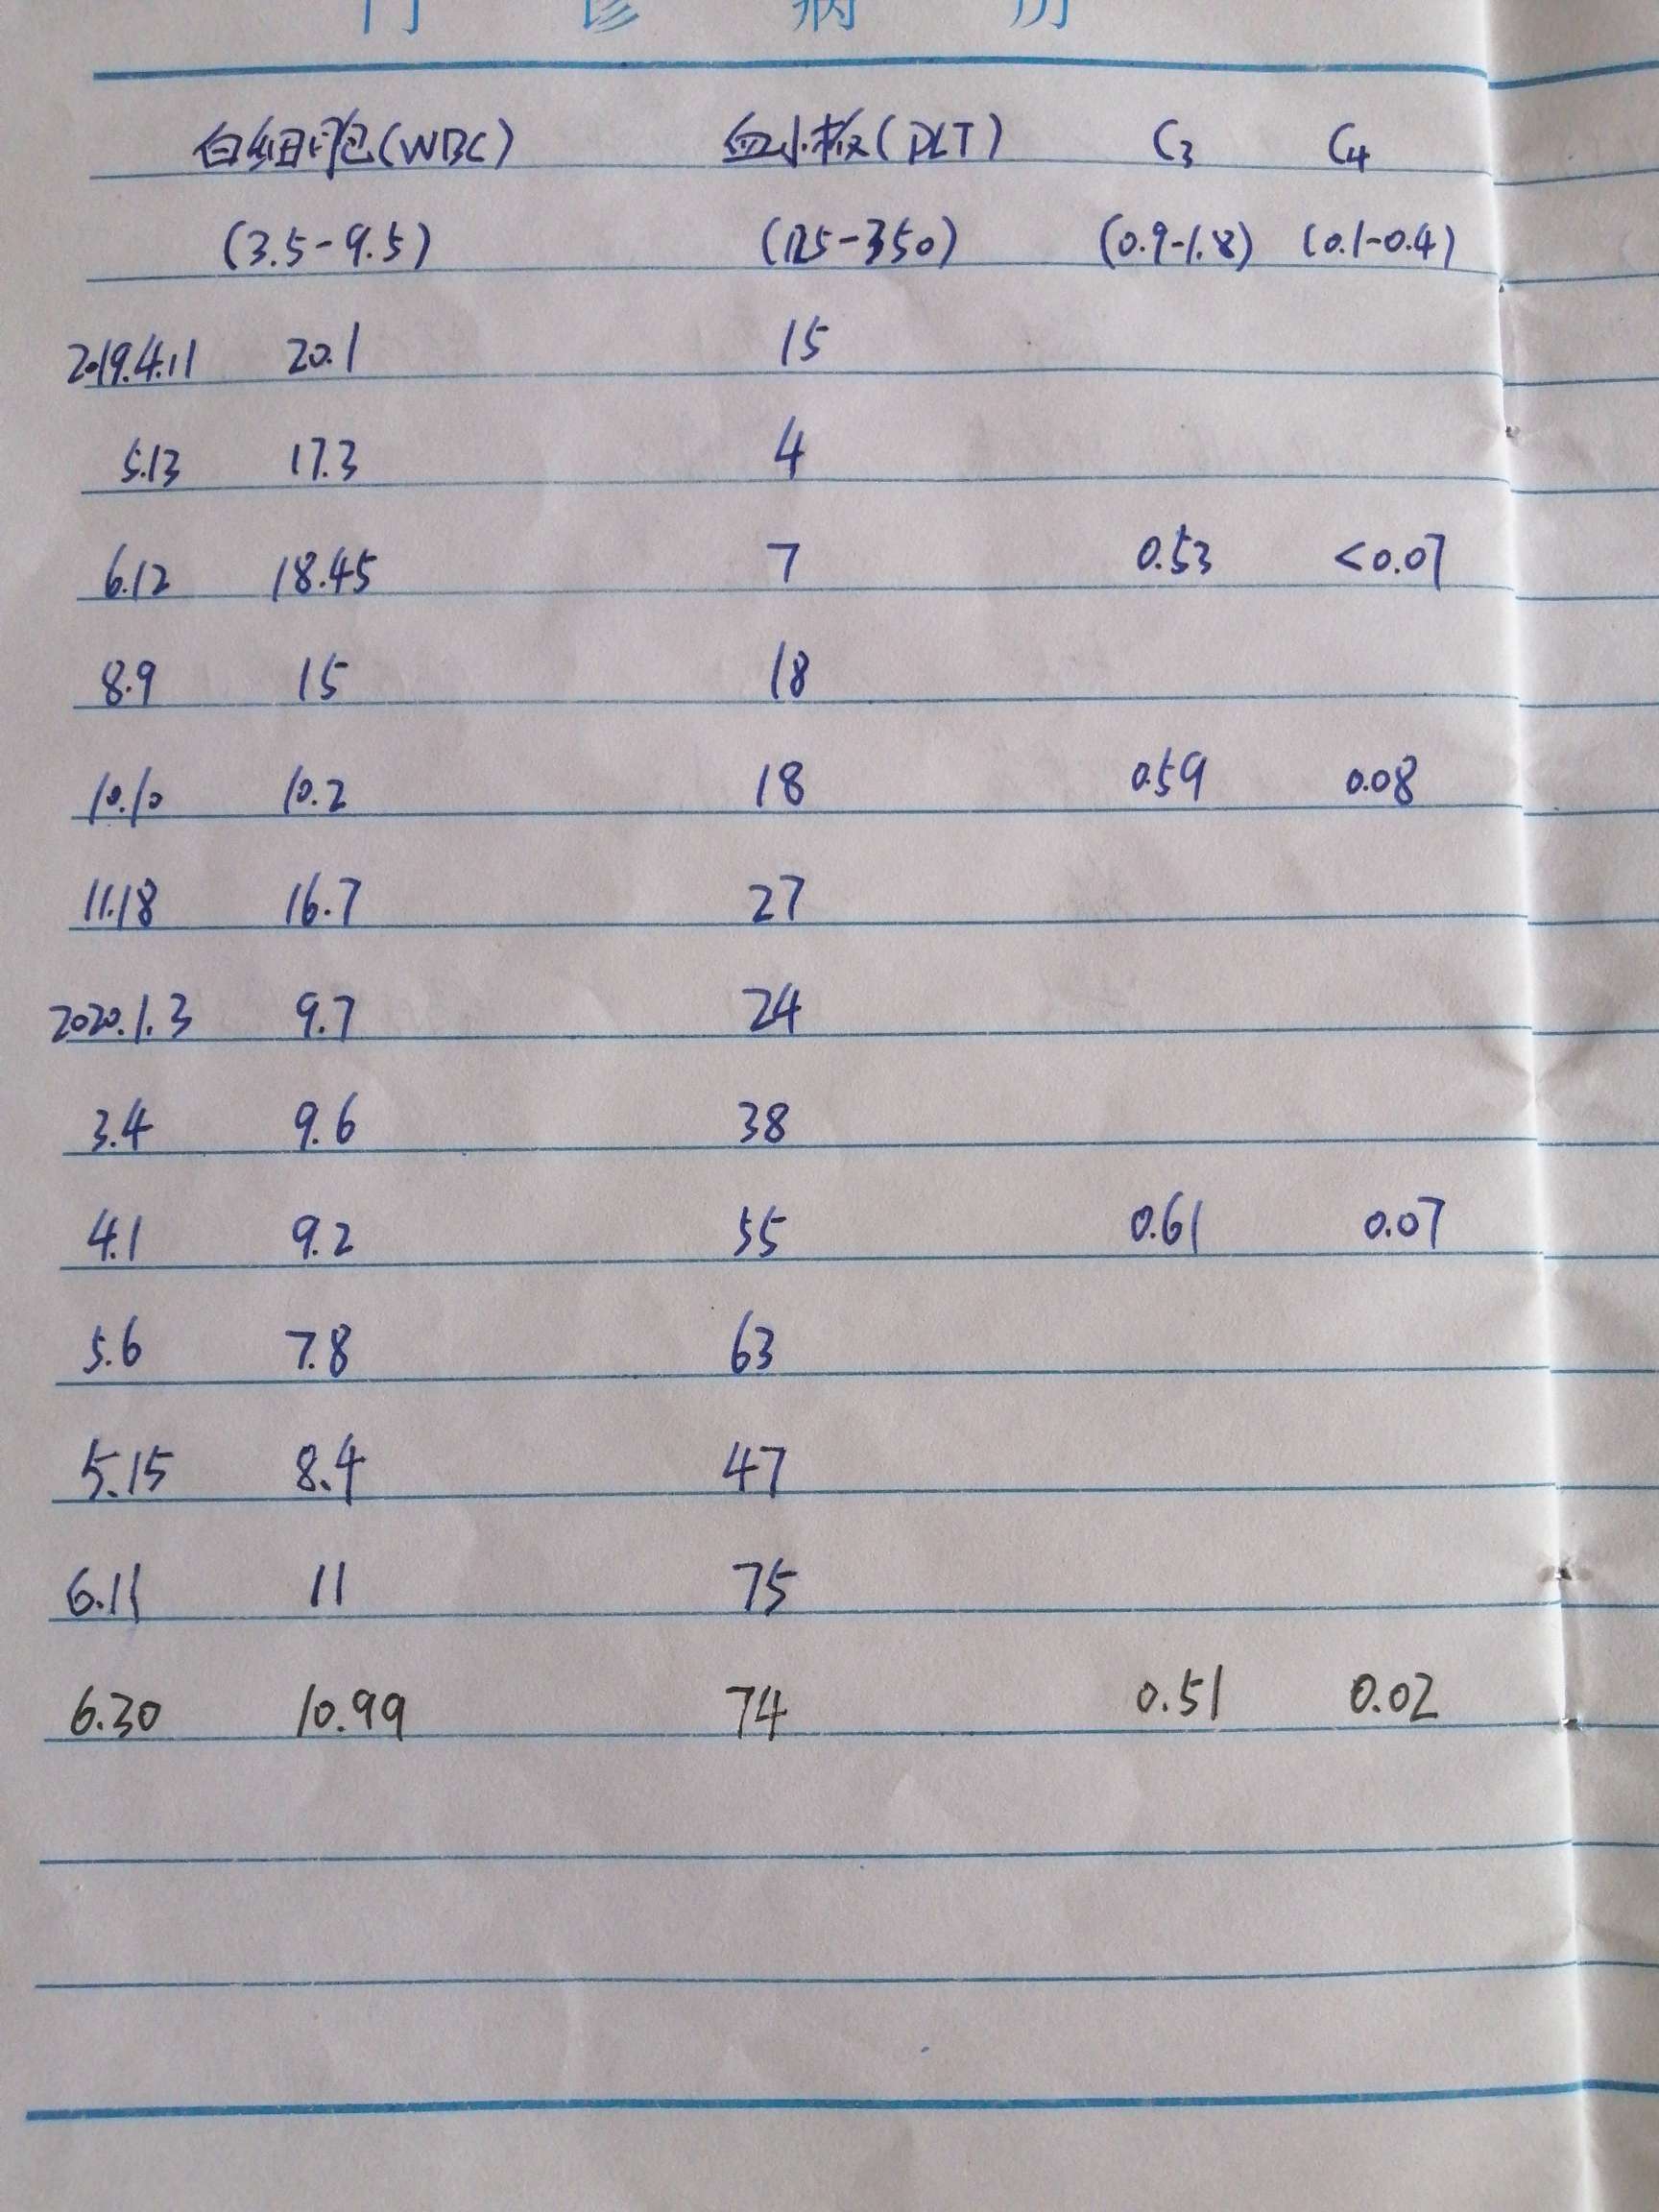 门 诊 病 历
白细胞(WBC) 血小板(PLT) C3 C4
(3.5-9.5) (125-350) (0.9-1.8) (0.1-0.4)
2019.4.11 20.1 15
5.13 17.3 4
6.12 18.45 7 0.53 <0.07
8.9 15 18
10.10 10.2 18 0.59 0.08
11.18 16.7 27
2020.1.3 9.7 24
3.4 9.6 38
4.1 9.2 55 0.61 0.07
5.6 7.8 63
5.15 8.4 47
6.11 11 75
6.30 10.99 74 0.51 0.02